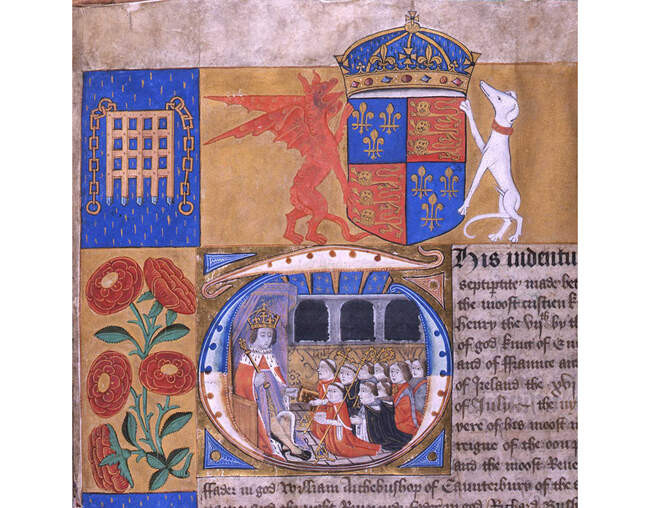 This indentu
septiptite made bet
the moost cristien k
henry the viith by th
of god king of En
and of ffraunce an
of Ireland the xvi
of July the
yere of his moost n
reigne of the oon p
and the moost Reue
ffader in god William Archebushop of Caunterbury of the
fader in god Richard